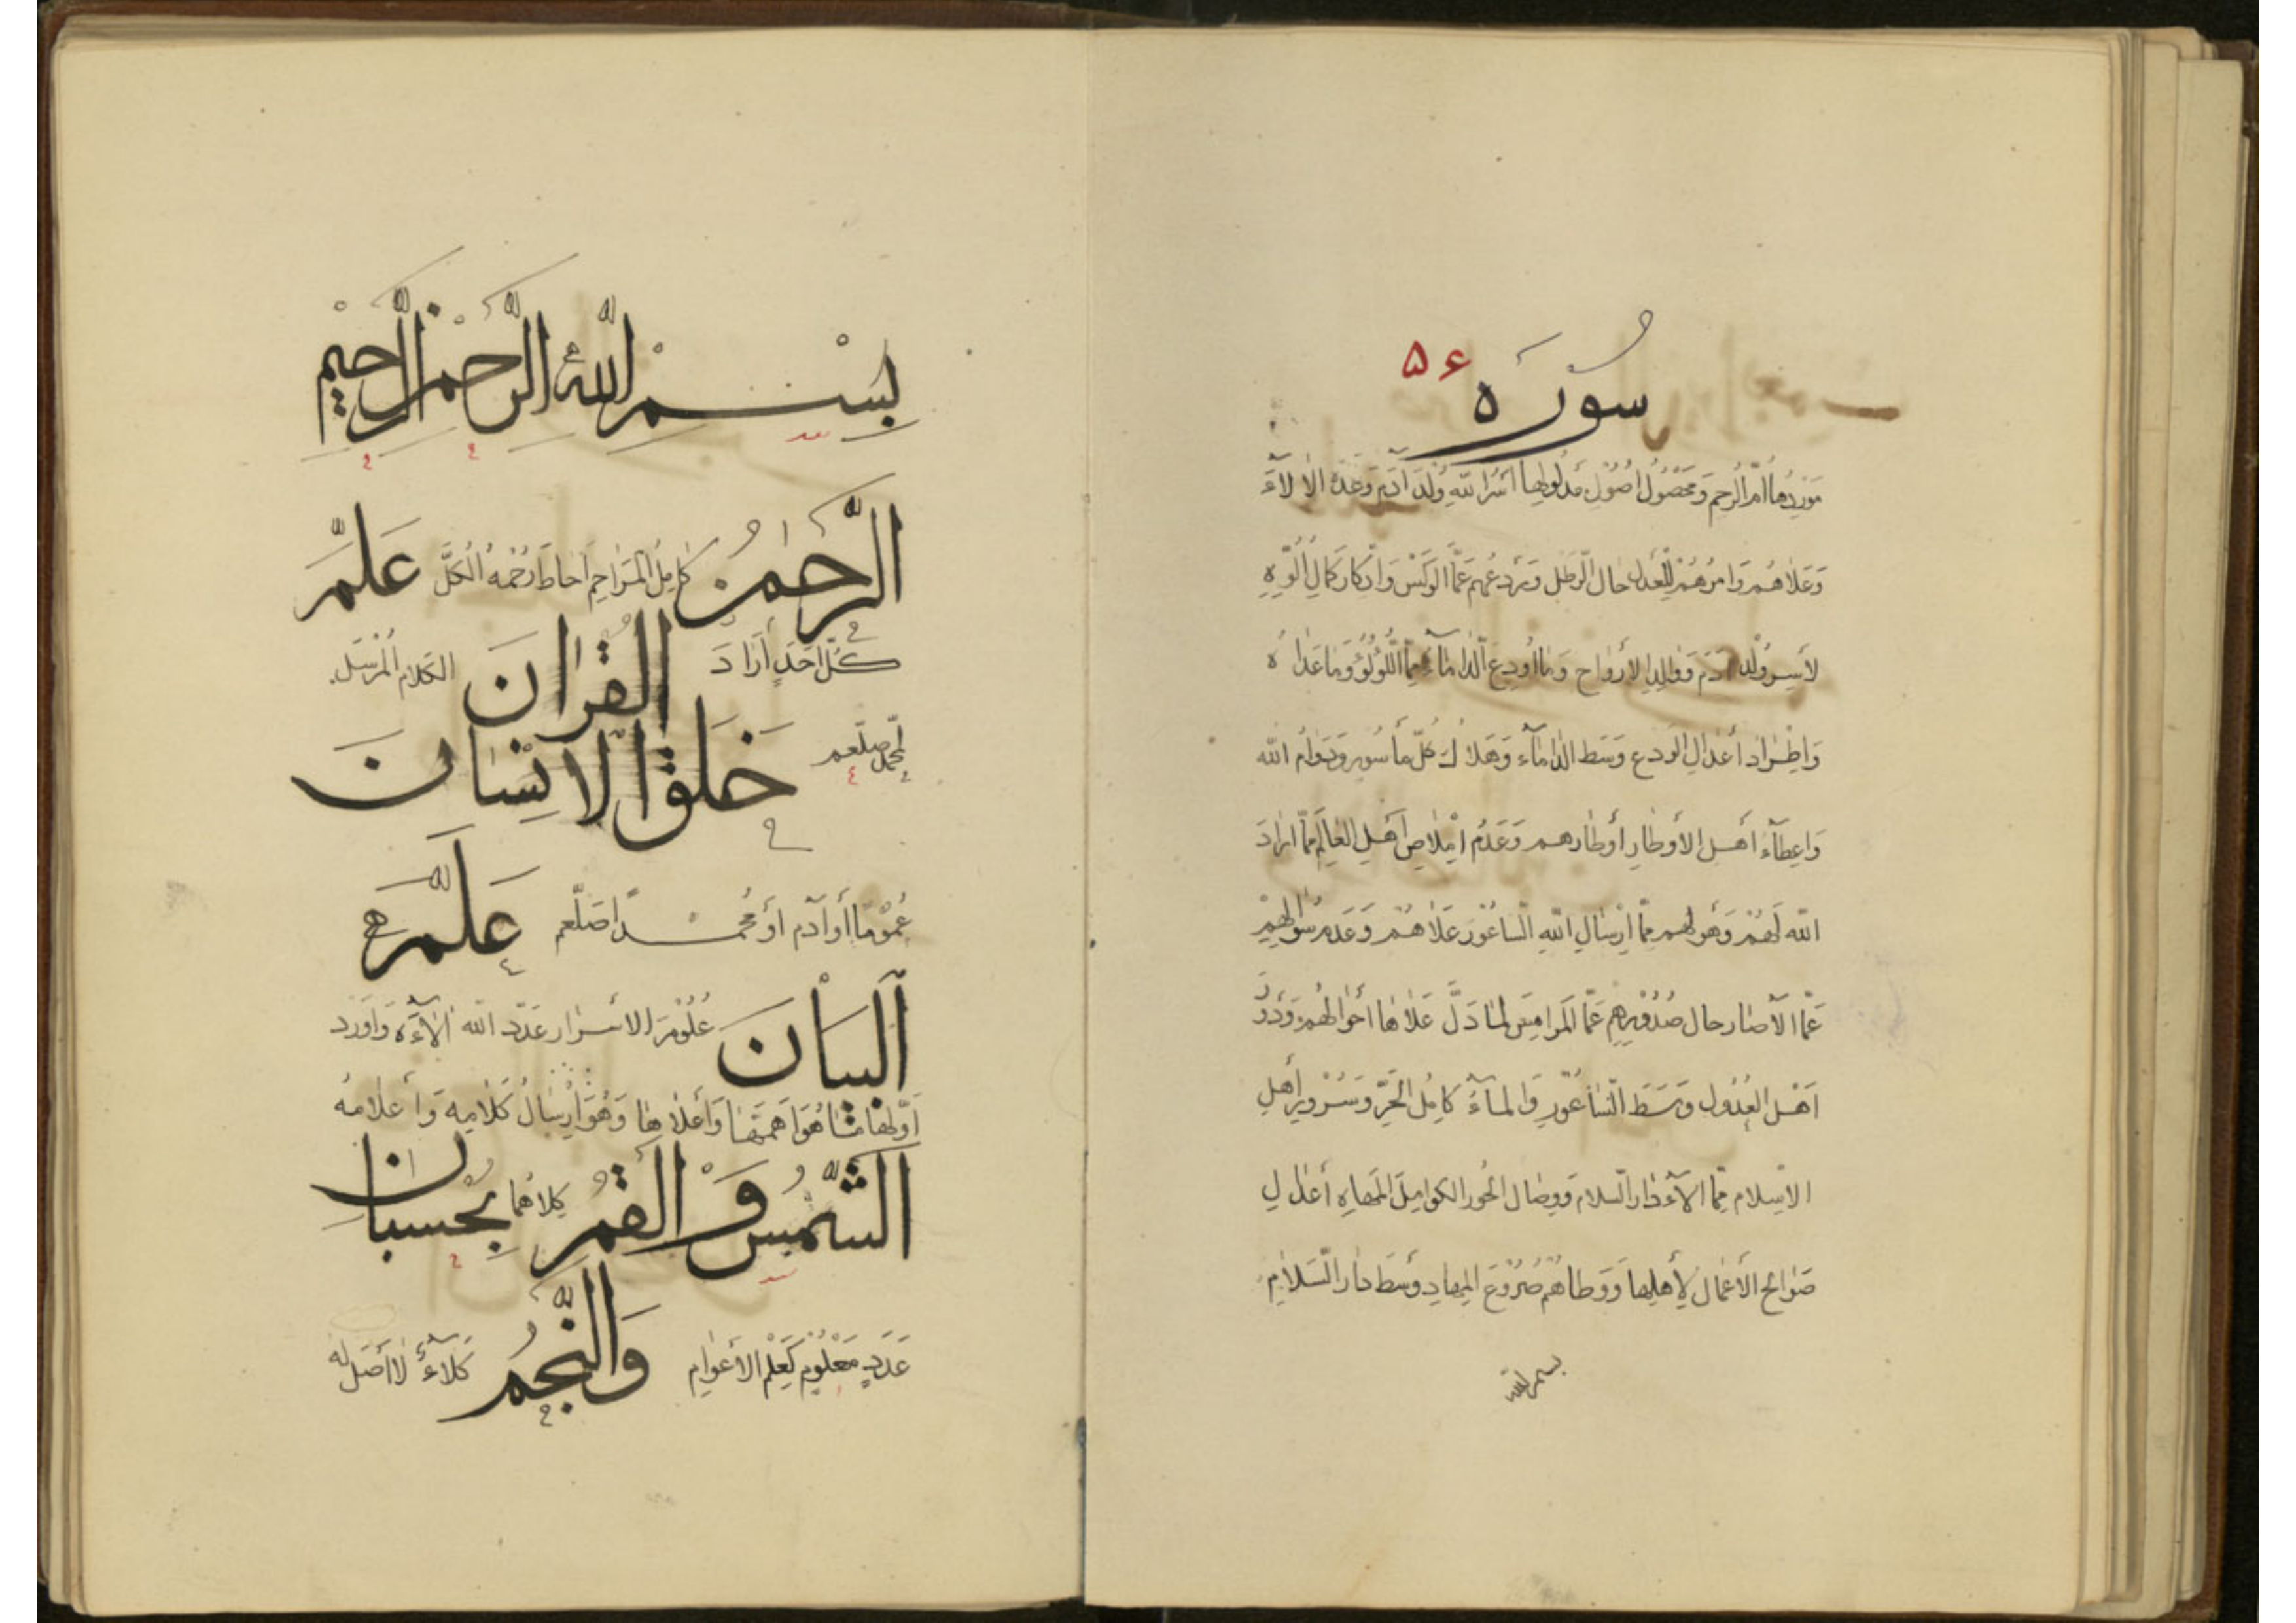 سوره ۵۶
مَورِدُها أمّ الرحم وَمحصُولُ اصُولِ مدلُولِها اسرُ الله وُلدَ آدَم وَعَدّهُ الالآءَ
وَعَلاهُم وَامرُهُم لِلعَدلِ حال الرطل وَرَدعُهم عَمّا الوَكس وَادّكار كَمالِ الُوّهِ
لأسرِ وُلدِ آدَم وَوَالِدِ الارواح وَمَا أودِعَ الدّامآءَ مِمّا اللُّؤلُؤ وَمَا عَدَاهُ
وَاطّراد أعدالِ الودع وَسَط الدامآء وَهَلاك كلّ مأسُور وَدَوامُ الله
وَاعطآءُ أهل الأوطار أوطارهم وَعَدمُ املاصِ أهلِ العالَم مِمّا ارادَ
الله لَهُم وَهَولهم مِمّا ارسَالِ اللهِ السّاعُورَ عَلاهُم وَعَدم سُؤالِهِم
عَمّا الآصار حال صُدُورِهِم عَمّا المرامِس لما دَلَّ عَلاها أحوالهُم وَدَورُ
أهل العُدُولِ وَسَطَ السّاعُورِ وَالمآءُ كامِل الحَرّ وَسُرُورِ أهلِ
الاسلام مِمّا الآءُ دار السلام وَوِصَال الحُور الكوامِل المَهاهِ أعدَالِ
صَوالح الأعمال لِأهلِها وَوِطاهُم صُرُوعَ المِهادِ وَسَطَ دارِ السَّلامِ
بسم الله
بِسْمِ اللهِ الرَّحْمٰنِ الرَّحِيْمِ
الرَّحْمٰنُ كامِلُ المَراحِم احاطَ رُحمُهُ الكُلَّ عَلَّمَ
كُلّ أحَدٍ أرادَ القُرانَ الكلام المُرسَل
لمحمد صلعم خَلَقَ الاِنْسَانَ
عُمُومًا أو آدم أو مُحمَّدًا صلّعم عَلَّمَهُ
الْبَيَانَ عُلُومَ الاسرار عَدّد الله الآءَهُ وَأورَد
أوّلها مَا هُوَ أهَمّهَا وَأعلاهَا وَهُوَ ارسَالُ كَلَامِهِ وَأعلامُهُ
الشَّمْسُ وَالْقَمَرُ كِلاهُما بِحُسْبَانٍ
عَدَدٍ مَعلُومٍ كَعِلمِ الأعوامِ وَالنَّجْمُ كَلآءٌ لا أصل له